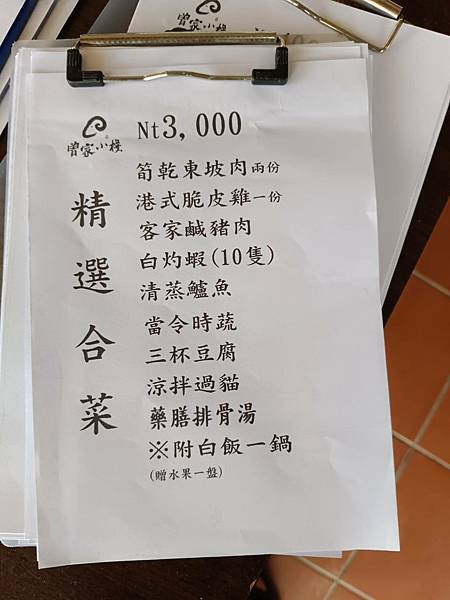 曾家小棧
曾家小棧
Nt3,000
精選合菜
筍乾東坡肉兩份
港式脆皮雞一份
客家鹹豬肉
白灼蝦(10隻)
清蒸鱸魚
當令時蔬
三杯豆腐
涼拌過貓
藥膳排骨湯
※附白飯一鍋
(贈水果一盤)